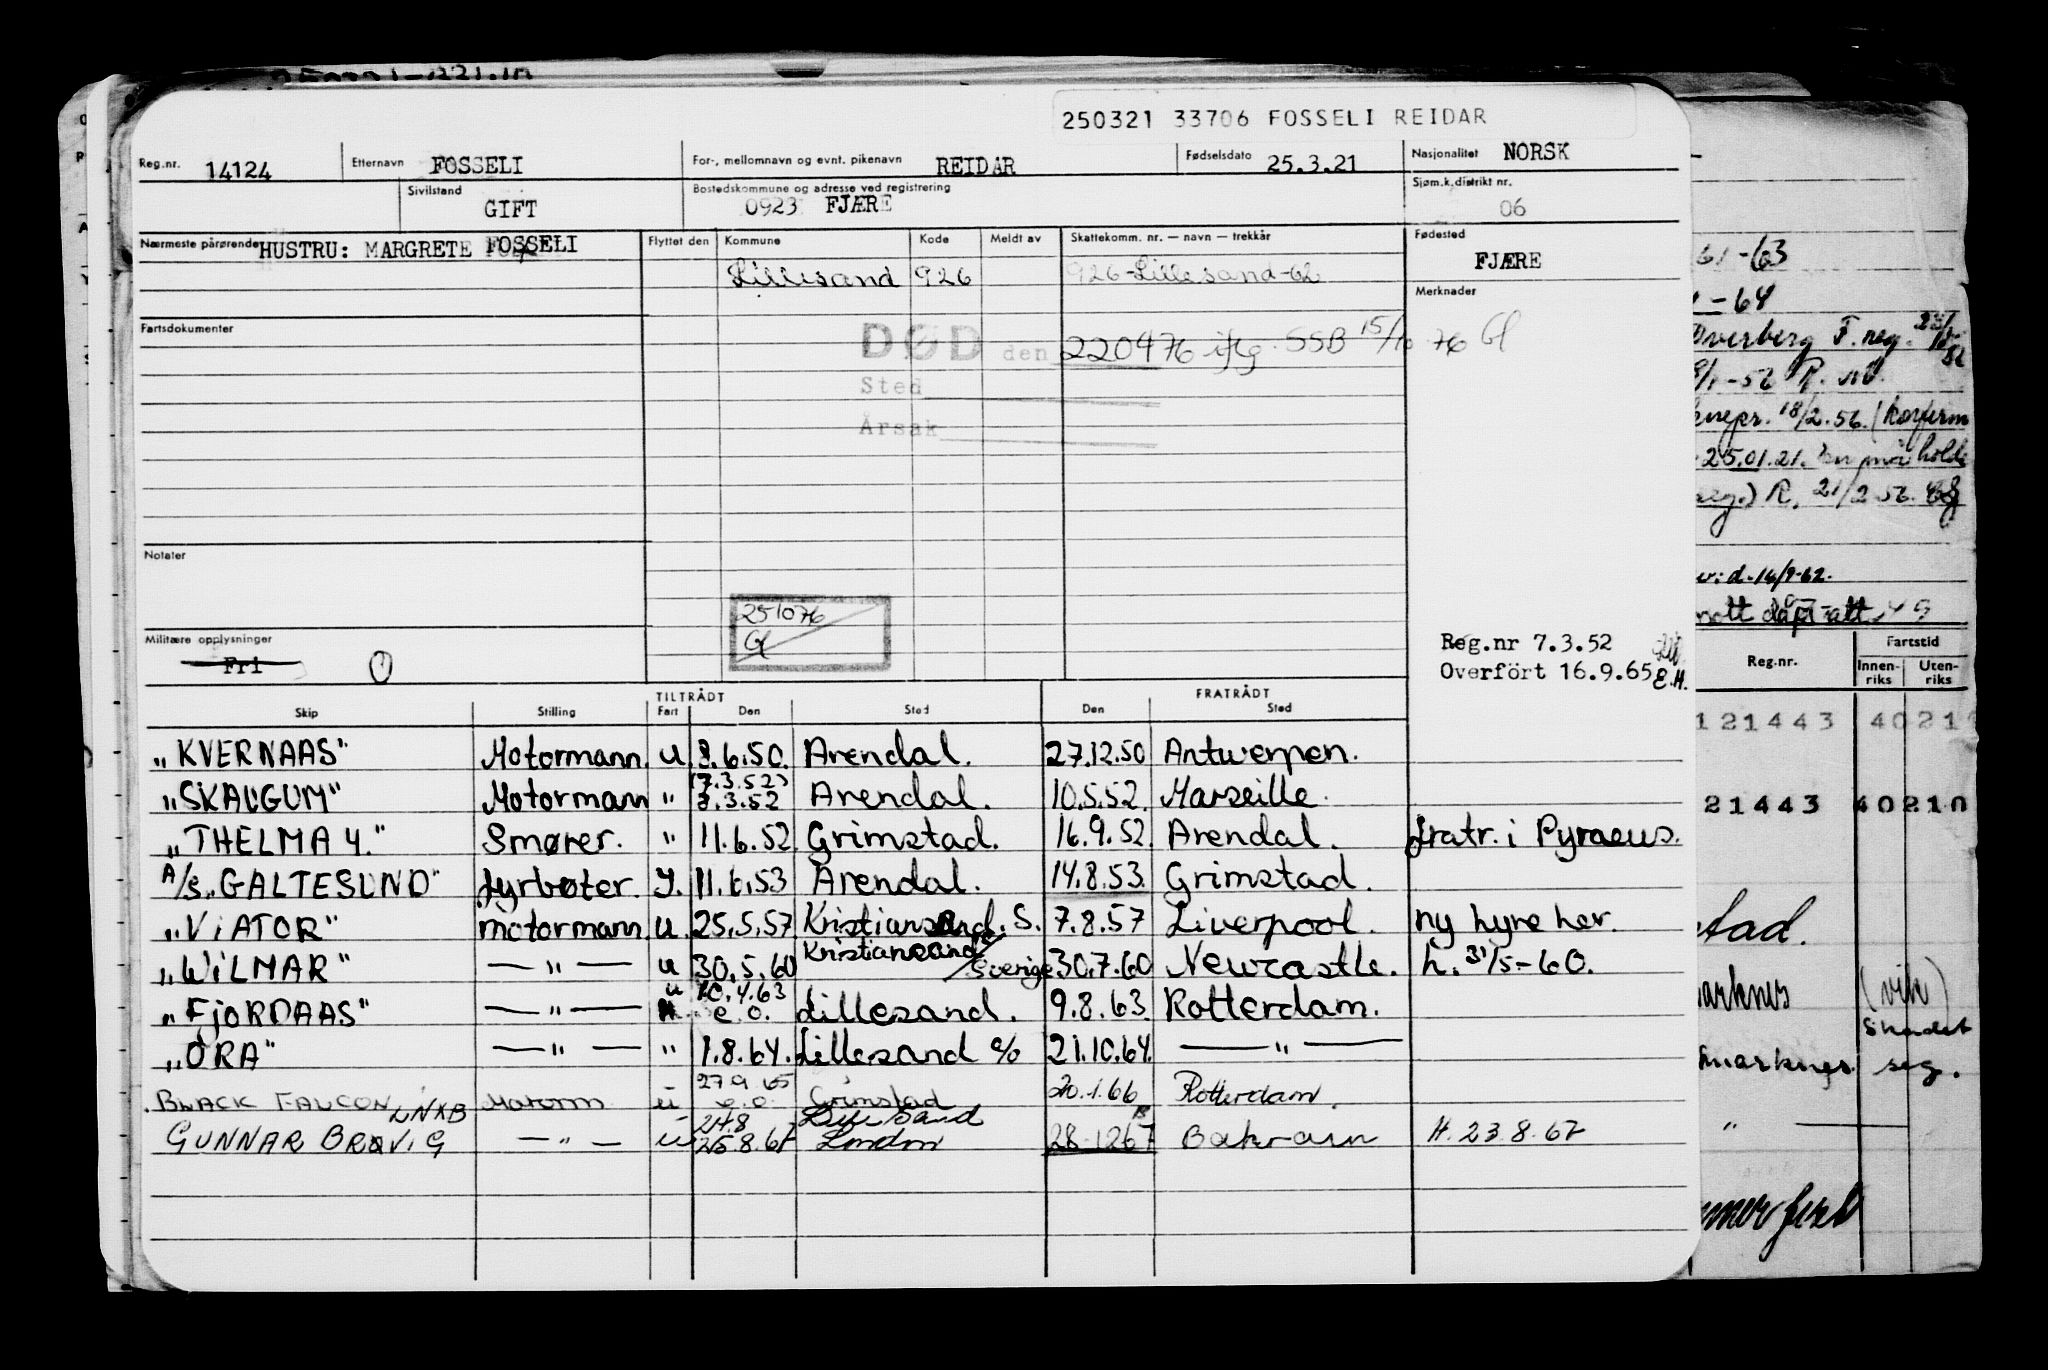 250321 33706 FOSSELI REIDAR
Reg.nr. 14124 Etternavn FOSSELI For-, mellomnavn og evnt. pikenavn REIDAR Fødselsdato 25.3.21 Nasjonalitet NORSK
Sivilstand GIFT Bostedskommune og adresse ved registrering 0923 FJÆRE Sjøm.k.distrikt nr. 06
Nærmeste pårørende HUSTRU: MARGRETE FOSSELI Flyttet den Kommune Kode Meldt av Skattekomm. nr. — navn — trekkår Fødested FJÆRE
Lillesand 926 926-Lillesand-62
Merknader
Fartsdokumenter
DØD den 220476 ifg. SSB 15/10 76 Gl
Sted
Årsak
Notater
251076
Gl
Militære opplysninger
Fri O
Reg.nr 7.3.52
Overført 16.9.65 E.H.
TILTRÅDT FRATRÅDT
Skip Stilling Fart Den Sted Den Sted
„KVERNAAS" Motormann. u 3.6.50. Arendal. 27.12.50 Antwerpen.
(7.3.52)
„SKAUGUM" Motormann " 3.3.52 Arendal. 10.5.52. Marseille.
„THELMA 4." Smører. " 11.6.52. Grimstad. 16.9.52. Arendal. fratr. i Pyraeus.
A/S „GALTESUND" fyrbøter. J. 11.6.53 Arendal. 14.8.53. Grimstad.
„ViATOR" motormann. u. 25.5.57. Kristiansand. S. 7.8.57 Liverpool. ny hyre her.
„WiLMAR" —"— u 30.5.60 Kristiansand/Sverige 30.7.60 Newcastle. h. 31/5-60.
„FjORDAAS" —"— u 10.4.63 e.o. Lillesand. 9.8.63. Rotterdam.
„ORA" —"— " 1.8.64. Lillesand % 21.10.64. —"—
27.9.65
BLACK FALCON LNXB Motorm ü e.o. Grimstad 20.1.66 Rotterdam.
24.8 Lillesand
GUNNAR BRØViG —"— ü 25.8.67 London 28.1267 Bahrain H. 23.8.67
61-63
-64
Overberg F. reg.
18/2.56. (Konfirm
25.01.21. holde
R. 21/2 56.
d.-14/9-62.
Reg.nr. Fartstid
Innen-riks Uten-riks
121443 4021
21443 40210
stad.
(vik)
Skadet
seg.
"